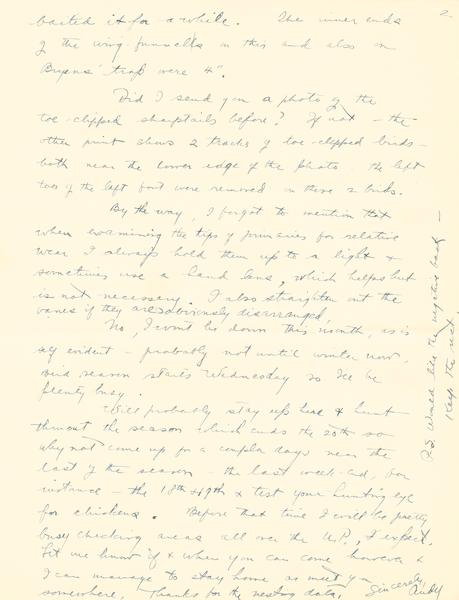 2
baited it for a while. The inner ends
of the wing funnells in this and also in
Bryens' trap were 4".
Did I send you a photo of the
toe-clipped sharptails before? If not - the
other print shows 2 tracks of toe-clipped birds -
both near the lower edge of the photo. the left
toes of the left foot were removed in these 2 birds.
By the way, I forgot to mention that
when examining the tips of primaries for relative
wear I always hold them up to a light &
sometimes use a hand lens, which helps but
is not necessary. I also straighten out the
vanes if they are obviously disarranged.
No, I won't be down this month, as is
self evident - probably not until winter now.
season starts Wednesday so I'll be
plenty busy.
Will probably stay up here & hunt
thruout the season which ends the 20th so
why not come up for a coupla days near the
last of the season - the last week-end, for
instance - the 18th & 19th & test your hunting eye
for chickens. Before that time I will be pretty
busy checking areas all over the U.P., I expect.
Let me know if & when you can come however &
I can manage to stay home or meet you
somewhere. Thanks for the nesting data.
Sincerely,
Andy
P.S. Would like the negative back -
Keep the rest.